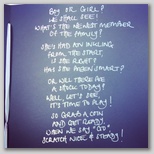 BOY OR GIRL?
WE SHALL SEE!
WHAT'S THE NEWEST MEMBER
OF THE FAMILY?
SHE'S HAD AN INKLING
FROM THE START
IS SHE RIGHT?
HAS SHE BEEN SMART?
OR WILL THERE BE
A SHOCK TODAY?
WELL, LET'S SEE,
IT'S TIME TO PLAY!
SO GRAB A COIN
AND GET READY,
WHEN WE SAY "GO"
SCRATCH NICE & STEADY!